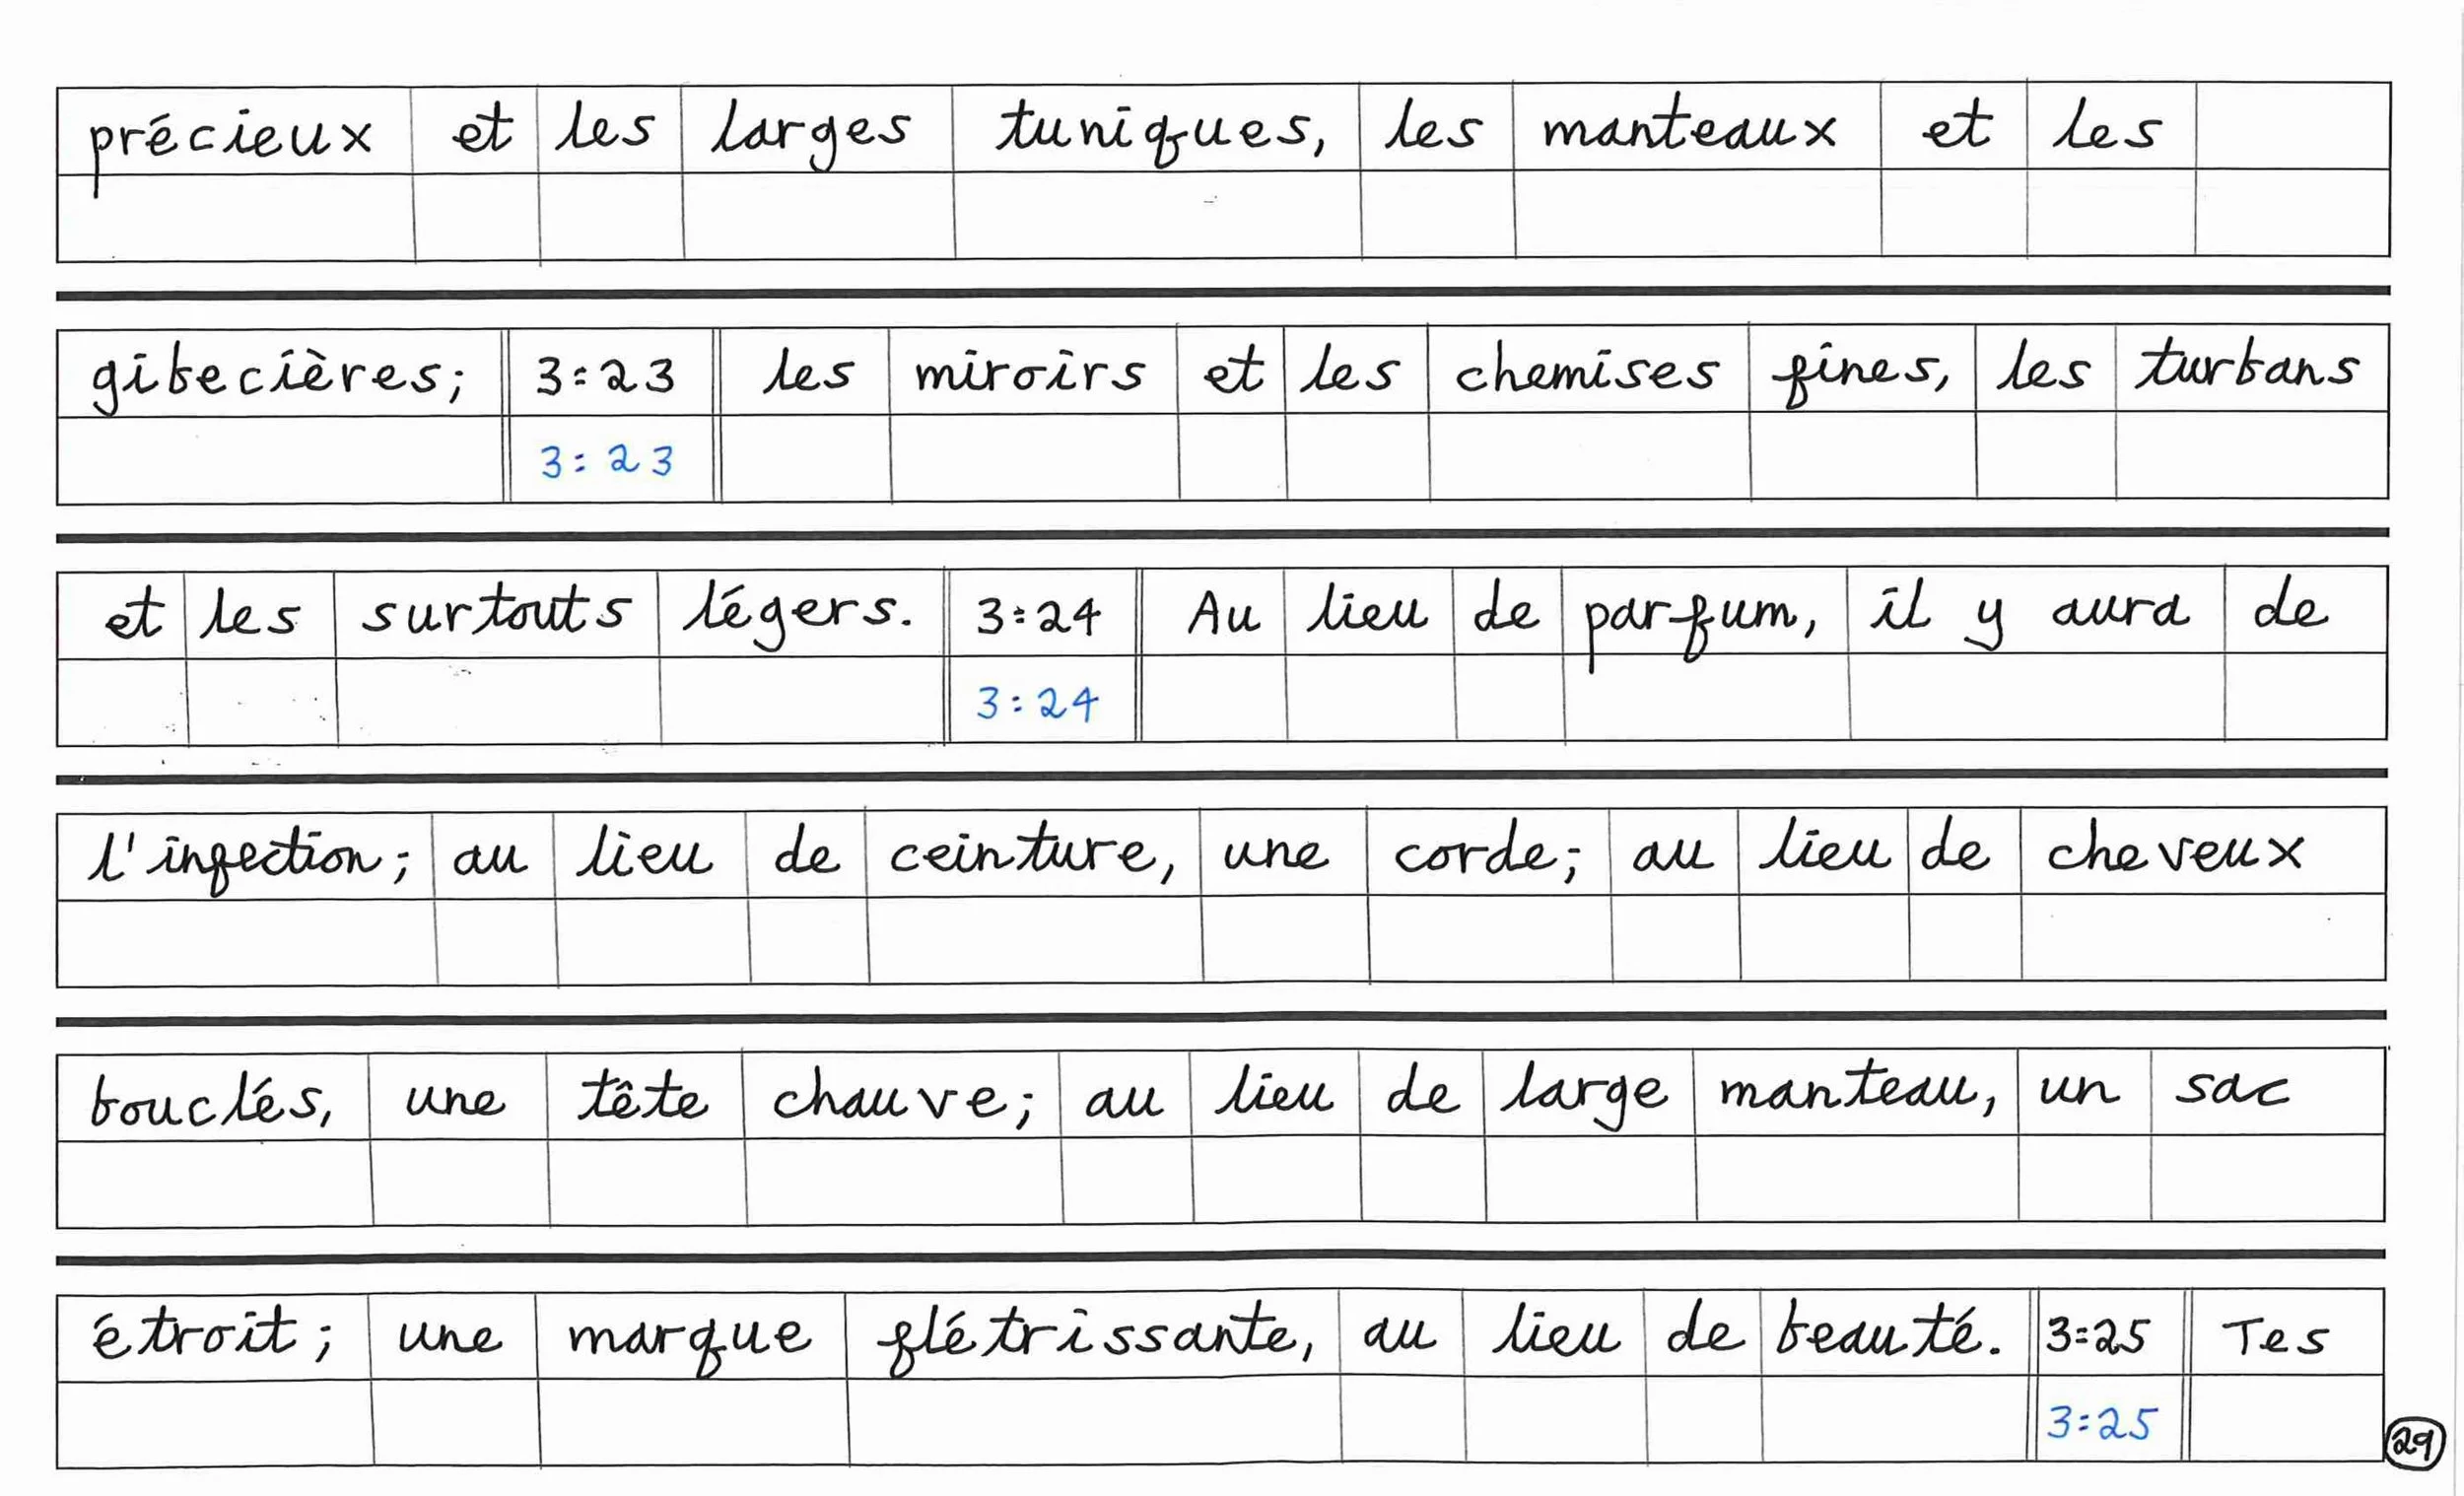 précieux et les larges tuniques, les manteaux et les
gibecières; 3:23 les miroirs et les chemises fines, les turbans
3:23
et les surtouts légers. 3:24 Au lieu de parfum, il y aura de
3:24
l'infection; au lieu de ceinture, une corde; au lieu de cheveux
bouclés, une tête chauve; au lieu de large manteau, un sac
étroit; une marque flétrissante, au lieu de beauté. 3:25 Tes
3:25
29